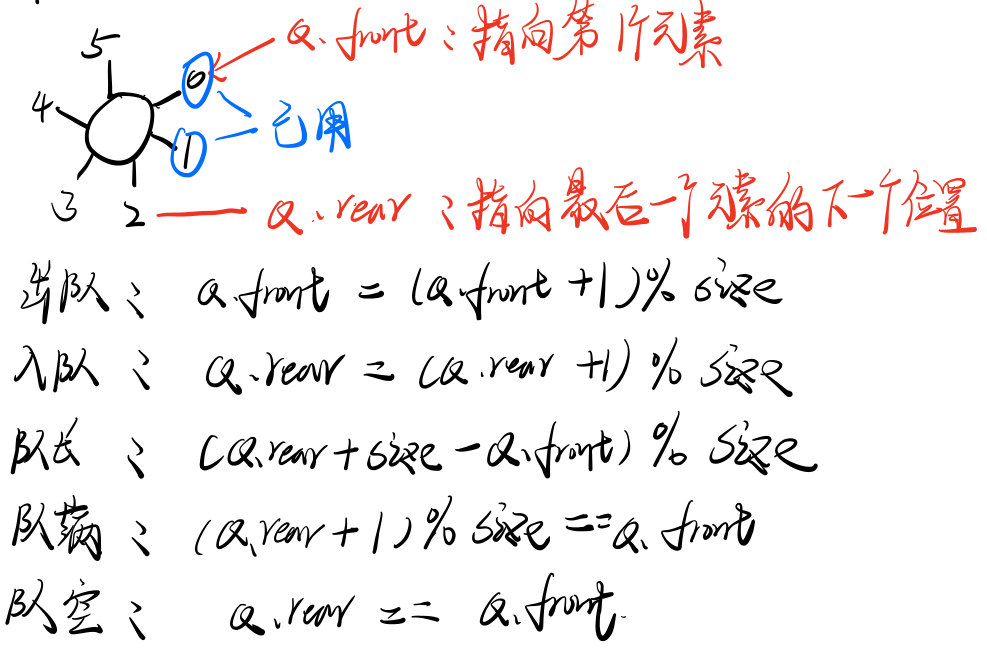 5
0 Q.front：指向第1个元素
4
1 已用
3
2 Q.rear：指向最后一个元素的下一个位置
出队： Q.front = (Q.front +1)% size
入队： Q.rear = (Q.rear +1) % size
队长： (Q.rear + size - Q.front) % size
队满： (Q.rear + 1)% size == Q.front
队空： Q.rear == Q.front.